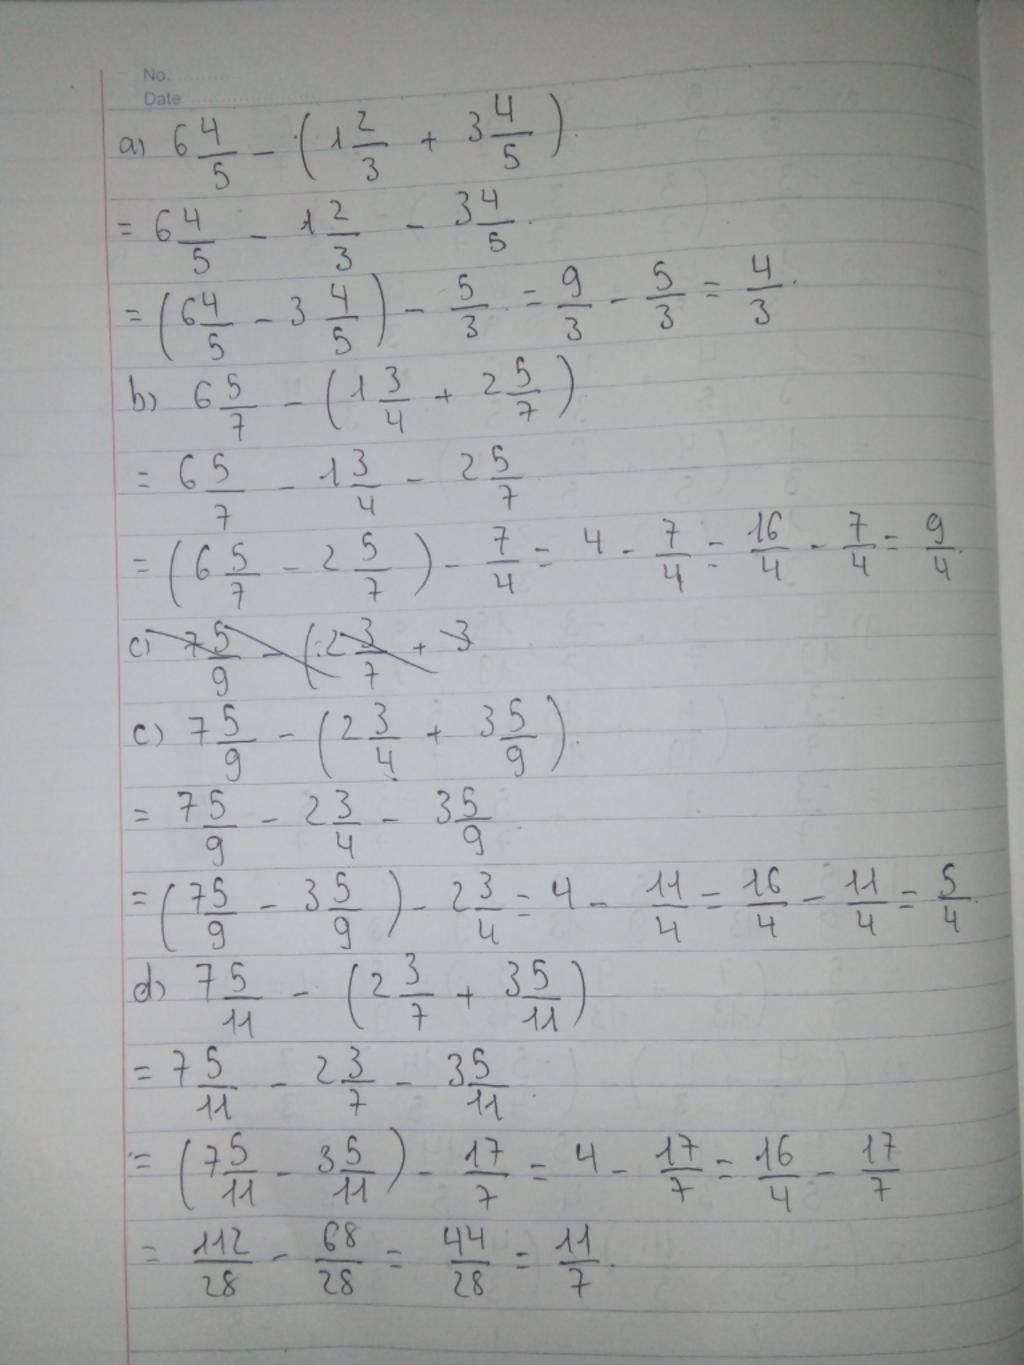 No.
Date
a) 6 4/5 - (1 2/3 + 3 4/5).
= 6 4/5 - 1 2/3 - 3 4/5.
= (6 4/5 - 3 4/5) - 5/3 = 9/3 - 5/3 = 4/3.
b) 6 5/7 - (1 3/4 + 2 5/7)
= 6 5/7 - 1 3/4 - 2 5/7
= (6 5/7 - 2 5/7) - 7/4 = 4 - 7/4 = 16/4 - 7/4 = 9/4.
c) 7 5/9 - (2 3/7 + 3
c) 7 5/9 - (2 3/4 + 3 5/9).
= 7 5/9 - 2 3/4 - 3 5/9.
= (7 5/9 - 3 5/9) - 2 3/4 = 4 - 11/4 = 16/4 - 11/4 = 5/4.
d) 7 5/11 - (2 3/7 + 3 5/11)
= 7 5/11 - 2 3/7 - 3 5/11.
= (7 5/11 - 3 5/11) - 17/7 = 4 - 17/7 = 16/4 - 17/7
= 112/28 - 68/28 = 44/28 = 11/7.